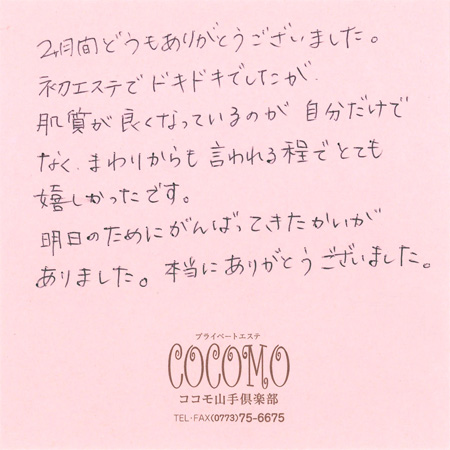 2ヶ月間どうもありがとうございました。
初エステでドキドキでしたが、
肌質が良くなっているのが自分だけで
なく、まわりからも言われる程でとても
嬉しかったです。
明日のためにがんばってきたかいが
ありました。本当にありがとうございました。
プライベートエステ
COCOMO
ココモ山手倶楽部
TEL・FAX(0773)75-6675